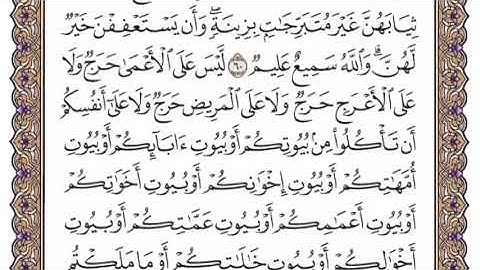 ثِيَابَهُنَّ غَيْرَ مُتَبَرِّجَٰتٍۭ بِزِينَةٍۖ وَأَن يَسْتَعْفِفْنَ خَيْرٌ
لَّهُنَّۗ وَٱللَّهُ سَمِيعٌ عَلِيمٌ ٦٠ لَّيْسَ عَلَى ٱلْأَعْمَىٰ حَرَجٌ وَلَا
عَلَى ٱلْأَعْرَجِ حَرَجٌ وَلَا عَلَى ٱلْمَرِيضِ حَرَجٌ وَلَا عَلَىٰٓ أَنفُسِكُمْ
أَن تَأْكُلُوا۟ مِنۢ بُيُوتِكُمْ أَوْ بُيُوتِ ءَابَآئِكُمْ أَوْ بُيُوتِ
أُمَّهَٰتِكُمْ أَوْ بُيُوتِ إِخْوَٰنِكُمْ أَوْ بُيُوتِ أَخَوَٰتِكُمْ
أَوْ بُيُوتِ أَعْمَٰمِكُمْ أَوْ بُيُوتِ عَمَّٰتِكُمْ أَوْ بُيُوتِ
أَخْوَٰلِكُمْ أَوْ بُيُوتِ خَٰلَٰتِكُمْ أَوْ مَا مَلَكْتُم